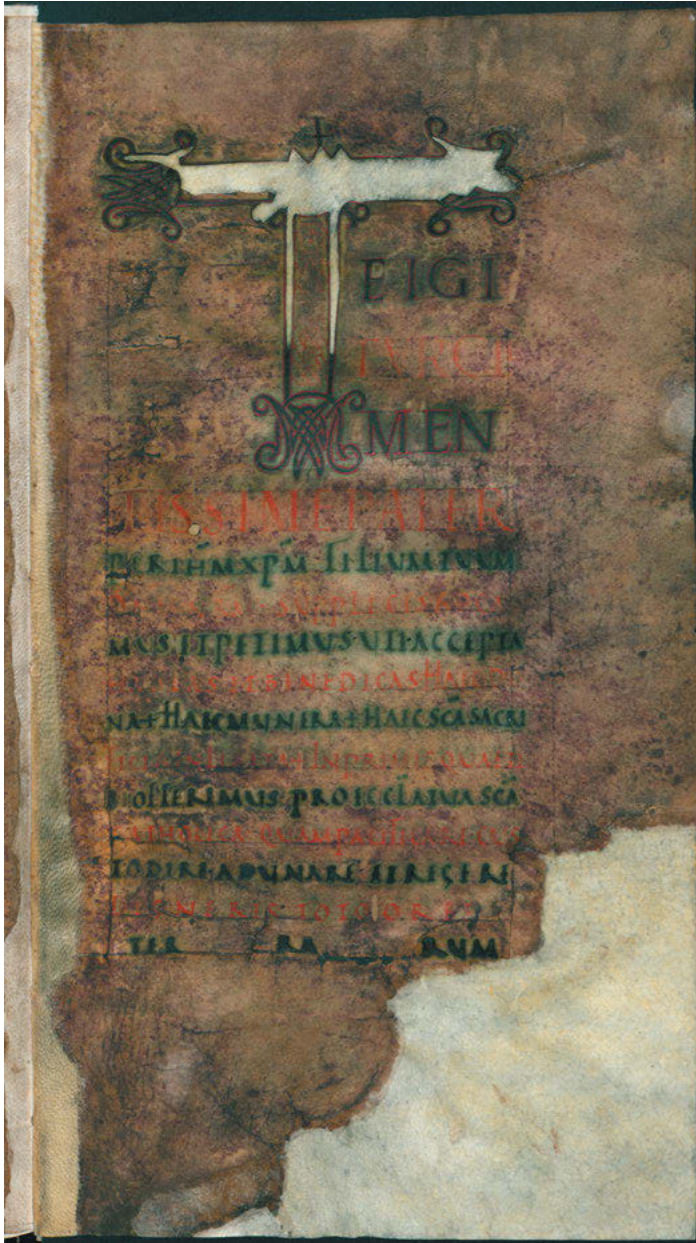 3
TEIGI
TURCLE
MEN
TISSIMEPATER
PERIHM̄XPM̄ FILIUMTUUM
SUPPLICESROGA
MUSETPETIMUSUTIACCEPTA
ETBENEDICASHAECDO
NA+HAECMUNERA+HAECSCĀSACRI
INPRIMISQUAETI
BIOFFERIMUS PROECCLĀTUASCĀ
CATHOLICA QUAMPACIFICARECUS
TODIREADUNARE ETREGERE
DIGNERISTOTOORBE
TER RA RUM